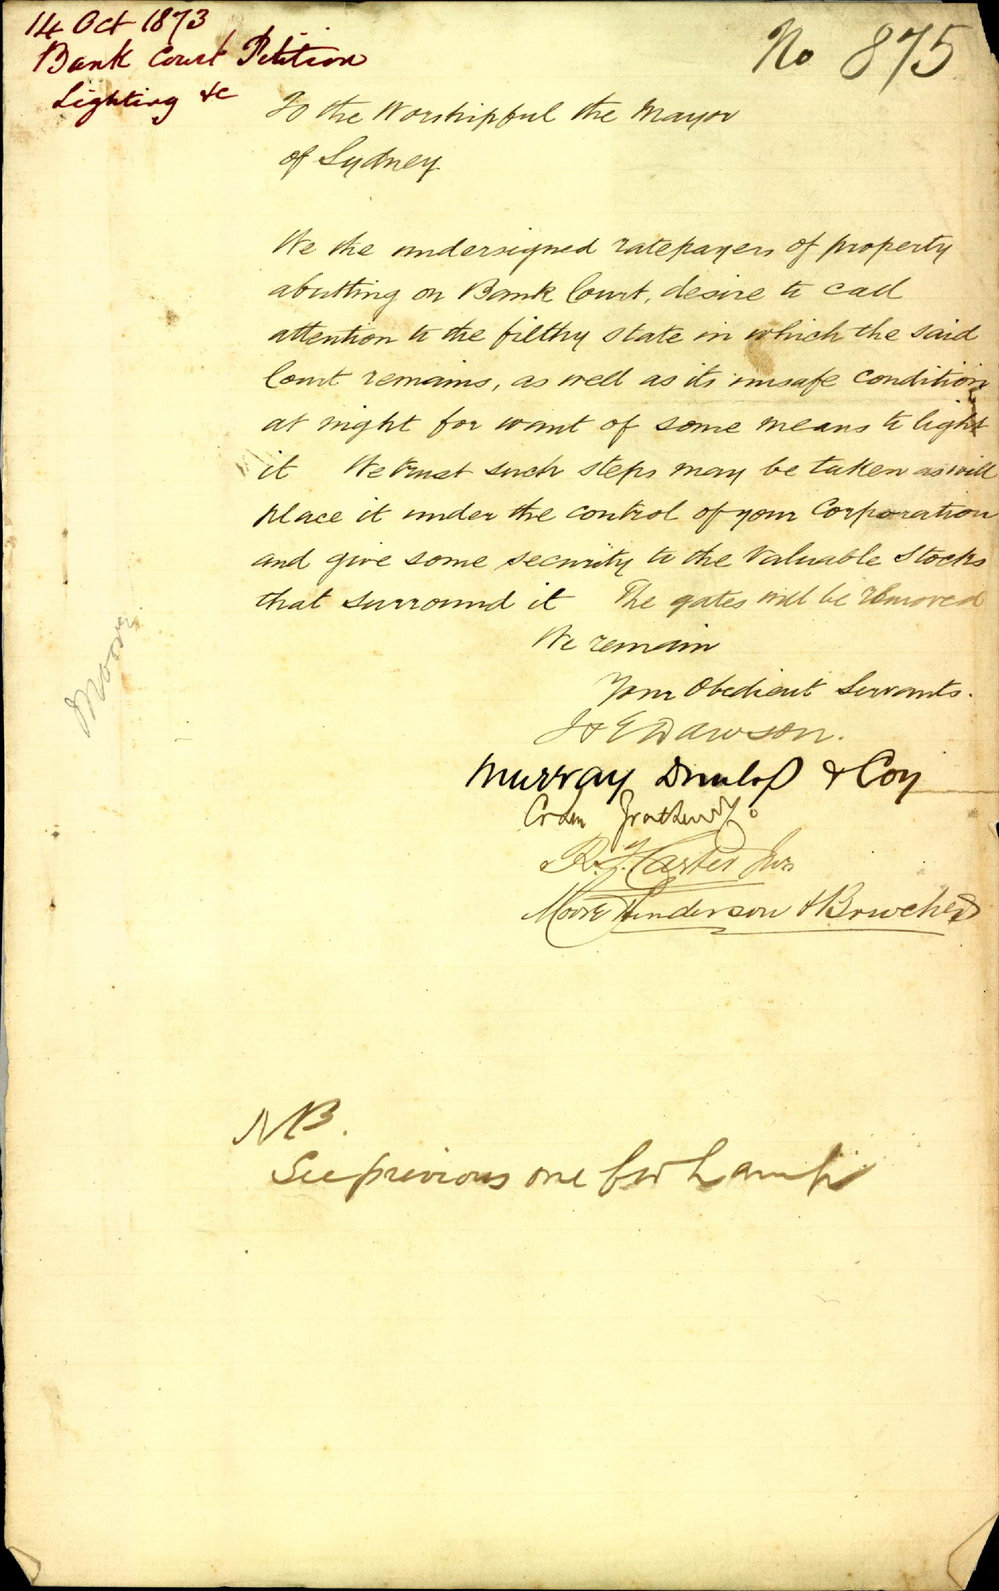 14 Oct 1873
Bank Court Petition
Lighting &c
No 875
To the Worshipful the Mayor
of Sydney
We the undersigned ratepayers of property
abutting on Bank Court, desire to call
attention to the filthy state in which the said
Court remains, as well as its unsafe condition
at night for want of some means to light
it We trust such steps may be taken as will
place it under the control of your Corporation
and give some security to the valuable stocks
that surround it The gates will be removed
We remain
Your Obedient Servants.
J & E Dawson.
Murray Dunlop & Coy
R. J. Carter Jnr
Moore Henderson & Bowcher
Moore
NB.
See previous one for Lamp